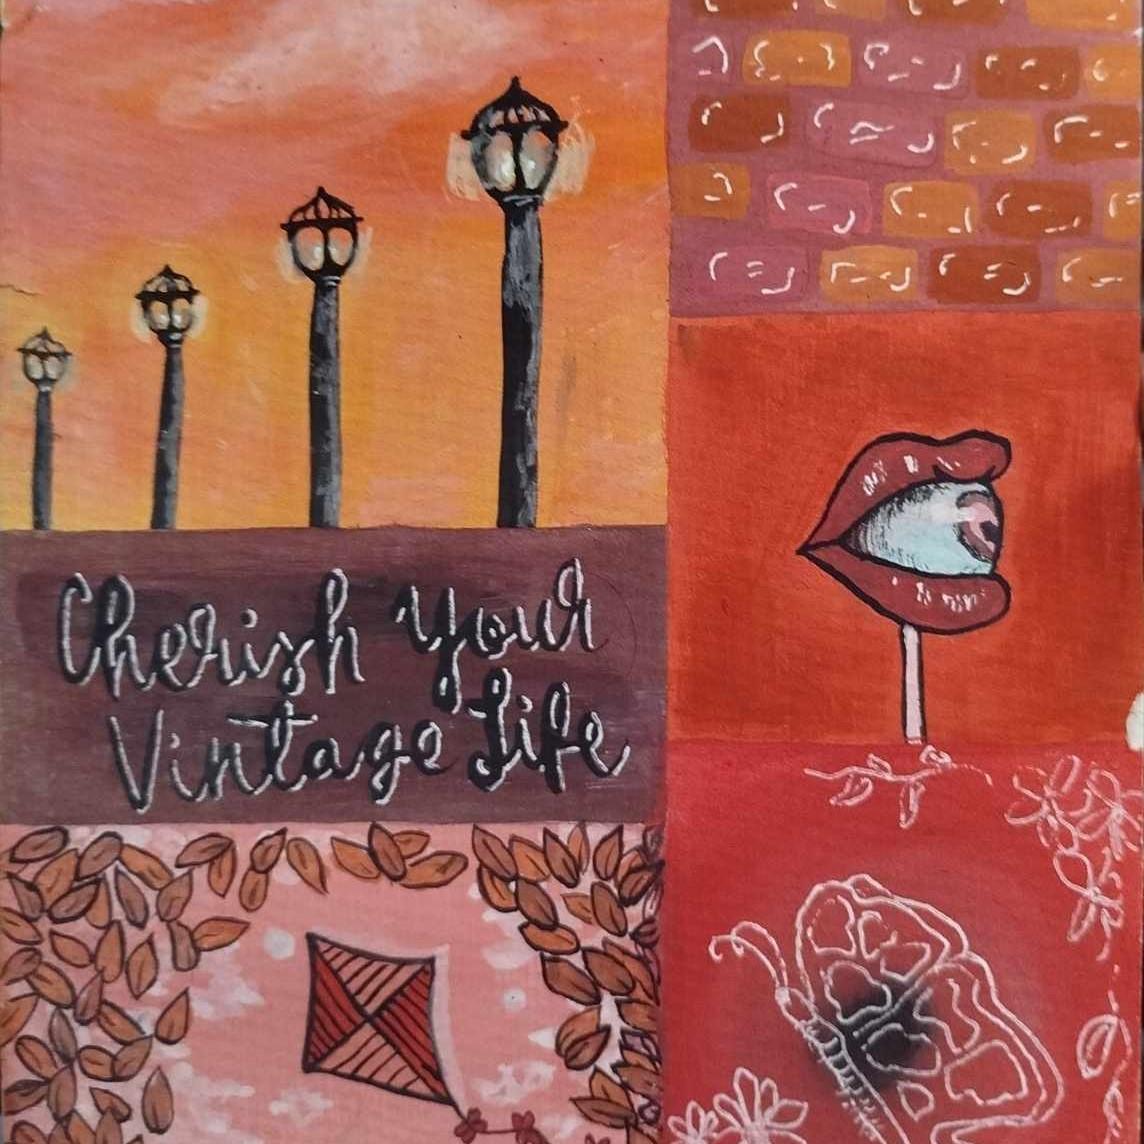 Cherish Your
Vintage Life